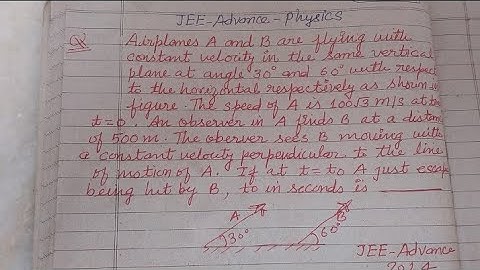 JEE-Advance-Physics
Q Airplanes A and B are flying with
constant velocity in the same vertical
plane at angle 30° and 60° with respect
to the horizontal respectively as shown in
figure. The speed of A is 100√3 m/s at
t=0. An observer in A finds B at a distan
of 500m. The oberver sees B moving with
a constant velocity perpendicular to the line
of motion of A. If at t=to A just escap
being hit by B, to in seconds is
A B
30° 60°
JEE-Advance
2014